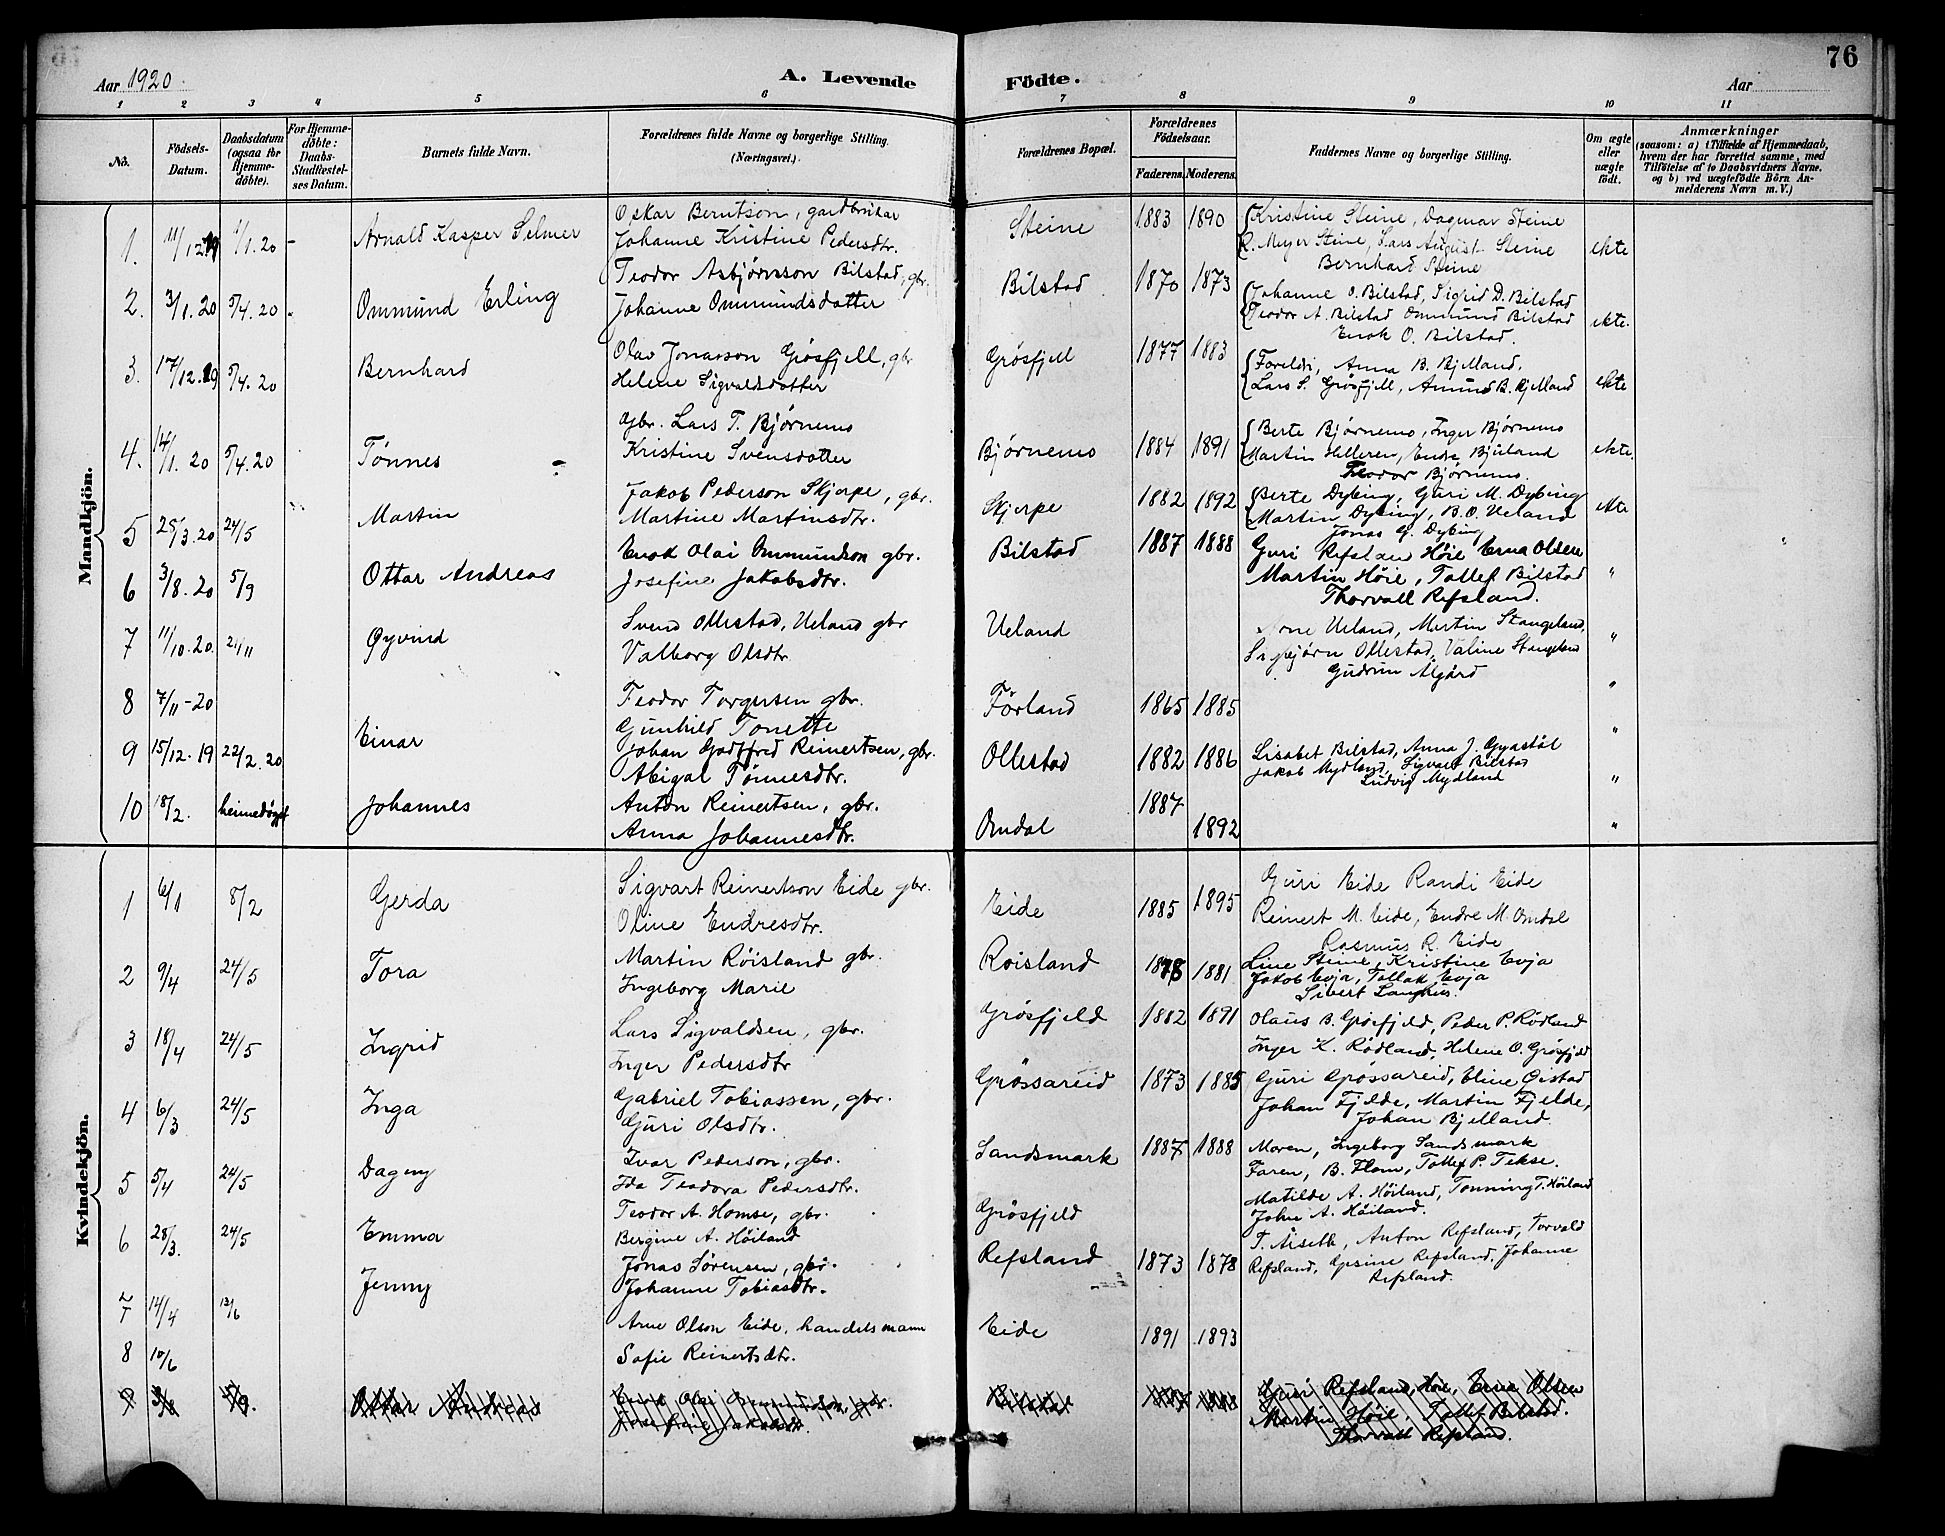 76
Aar 1920
A. Levende Födte.
Aar
1 2 3 4 5 6 7 8 9 10 11
No.
Födsels-Datum.
Daabsdatum (ogsaa for Hjemme-döbte).
For Hjemme-döbte: Daabs-Stadfæstel-ses Datum.
Barnets fulde Navn.
Forældrenes fulde Navne og borgerlige Stilling. (Næringsvei.)
Forældrenes Bopæl.
Forældrenes Födselsaar.
Faderens. Moderens.
Faddernes Navne og borgerlige Stilling.
Om ægte eller uægte födt.
Anmærkninger
(saasom: a) i Tilfælde af Hjemmedaab, hvem der har forrettet samme, med Tilföielse af to Daabsvidners Navne, og b) ved uægtefödte Börn An-melderens Navn m. V.)
Mandkjön.
1. 11/12.19 1/1.20 - Arnald Kasper Selmer
Oskar Berntson, gardbrukar
Johanne Kristine Pedersdtr.
Steine 1883 1890
Kristine Steine, Dagmar Steine
R. Meyer Steine, Lars August Steine
Bernhard Steine
ekte
2. 3/1.20 5/4.20 Ommund Erling
Teodor Asbjørnson Bilstad, gbr.
Johanne Ommundsdatter
Bilstad 1870 1873
Johanne O. Bilstad, Sigrid D. Bilstad
Teodor A. Bilstad Ommund Bilstad
Enok O. Bilstad.
ekte.
3. 17/12.19 5/4.20 Bernhard
Olav Jonasson Grøsfjell, gbr
Helene Sigvaldsdatter
Grøsfjell 1877 1883
Foreldri, Anna B. Bjelland,
Lars S. Grøsfjell, Amund B. Bjelland
ekte
4. 14/1.20 5/4.20 Tønnes
gbr. Lars T. Bjørnemo
Kristine Svensdatter
Bjørnemo 1884 1891
Berte Bjørnemo, Inger Bjørnemo
Martin Helleren, Endre Bjuland
Teodor Bjørnemo.
ekte.
5 25/3.20 24/5 Martin
Jakob Pederson Skjerpe, gbr.
Martine Martinsdtr.
Skjerpe 1882 1892
Berte Dybing, Guri M. Dybing
Martin Dybing, B. O. Ueland
Jonas G. Dybing
ekte
6 3/8.20 5/9 Ottar Andreas
Enok Olai Ommundson gbr.
Josefine Jakobsdtr.
Bilstad 1887 1888
Guri Refsland Høie Erna Olsen
Martin Høie, Tallef Bilstad
Thorvall Refsland.
"
7 11/10.20. 21/11 Øyvind
Svend Ollestad, Ueland gbr
Valborg Olsdtr
Ueland
Arne Ueland, Martin Stangeland,
Ollestad, Valine Stangeland
Gudrun Ålgård
"
8 7/11-20
Teodor Torgersen gbr.
Gunhild Tonette
Førland 1865 1885
"
9 15/12.19 22/2.20 Einar
Johan Godtfred Reinertsen, gbr.
Abigal Tønnesdtr.
Ollestad 1882 1886
Lisabet Bilstad, Anna J. Gyastøl
Jakob Mydland, Sigvart Bilstad
Ludvig Mydland
"
10 18/2. heimedøypt Johannes
Anton Reinertsen, gbr.
Anna Johannesdtr.
Omdal 1887 1892
"
Kvindekjön.
1 6/1 8/2 Gerda
Sigvart Reinertson Eide gbr.
Oline Endresdtr.
Eide 1885 1895
Guri Eide Randi Eide
Reinert M. Eide, Endre M. Omdal
Rasmus R. Eide
2 9/4 24/5 Tora
Martin Røisland gbr.
Ingeborg Marie
Røisland 1878 1881
Line Steine, Kristine Evja
Jakob Evja, Tollak Evja
Sivert Langhus.
3 18/4 24/5 Ingrid
Lars Sigvaldsen, gbr.
Inger Pedersdtr
Grøsfjeld 1882 1891
Olaus B. Grøsfjeld, Peder P. Rødland
Inger K. Rødland, Helene O. Grøsfjeld
4 6/3 24/5 Inga
Gabriel Tobiassen, gbr.
Guri Olsdtr.
Grøssareid 1873 1885
Guri Grøssareid, Eline Øistad
Johan Fjelde, Martin Fjelde,
Johan Bjelland
5 5/4 24/5 Dagny
Ivar Pederson, gbr.
Ida Teodora Pedersdtr.
Sandsmark 1887 1888
Moren, Ingeborg Sandsmark
Faren, B. Flom, Tollef P. Tekse.
6 28/3. 24/5 Emma
Teodor A. Homse, gbr.
Bergine A. Høiland
Grøsfjeld
Matilde A. Høiland, Tonning T. Høiland
John A. Høiland.
7 14/4 13/6 Jenny
Jonas Sørensen, gbr.
Johanne Tobiasdtr.
Refsland 1873 1878
T. Årseth, Anton Refsland, Torvald
Refsland, Gesine Refsland. Johanne
Refsland.
8 10/6
Arne Olson Eide, handelsmann
Sofie Reinertsdtr.
Eide 1891 1893
9 3/8 5/9. Ottar Andreas
Enok Olai Ommundson, gbr.
Josefine Jakobsdtr.
Bilstad 1887 1888
Guri Refsland, Høie, Erna Olsen
Martin Høie, Tallef Bilstad.
Thorvall Refsland.